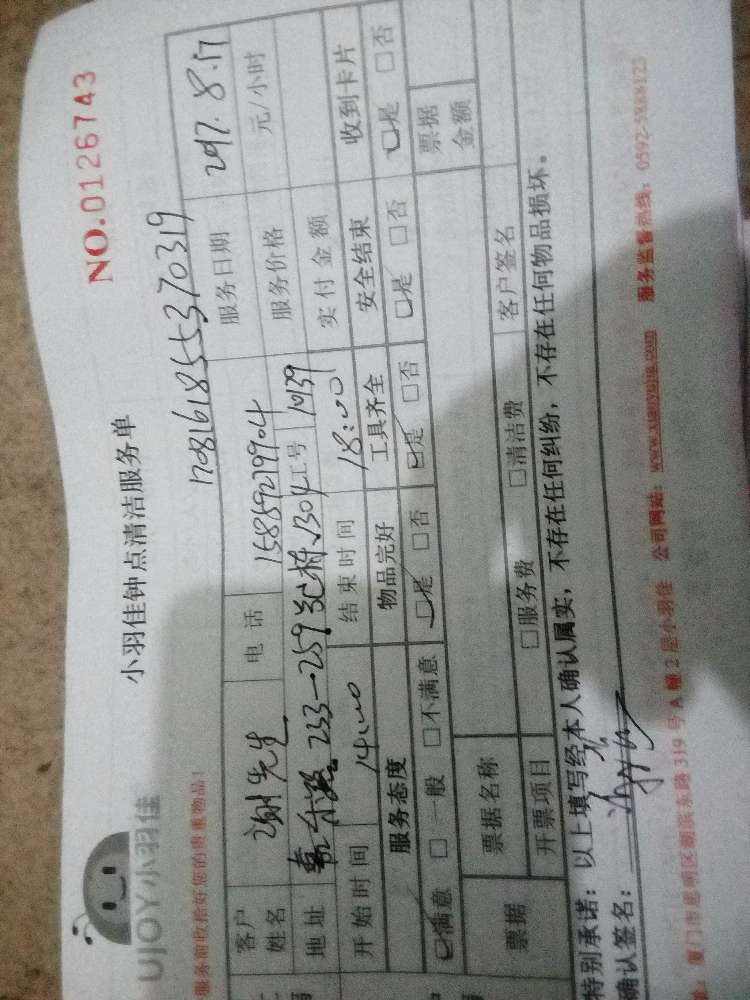 UJOY小羽佳
小羽佳钟点清洁服务单
NO.0126743
服务前收拾好您的贵重物品!
1708161855370319
客户姓名 谢先生 电话 15859279904 服务日期 2017.8.17
地址 233-259 1304 工号 10139 服务价格 元/小时
开始时间 14:00 结束时间 18:00 实付金额
服务态度 物品完好 工具齐全 安全结束 收到卡片
☑满意 □一般 □不满意 ☑是 □否 ☑是 □否 ☑是 □否 ☑是 □否
票据 票据名称 票据金额
开票项目 □服务费 □清洁费 客户签名
特别承诺:以上填写经本人确认属实,不存在任何纠纷,不存在任何物品损坏。
确认签名:
厦门市思明区湖滨东路319号A幢2层小羽佳 公司网站:www.xiaoyujia.com 服务监督热线:0592-5888123